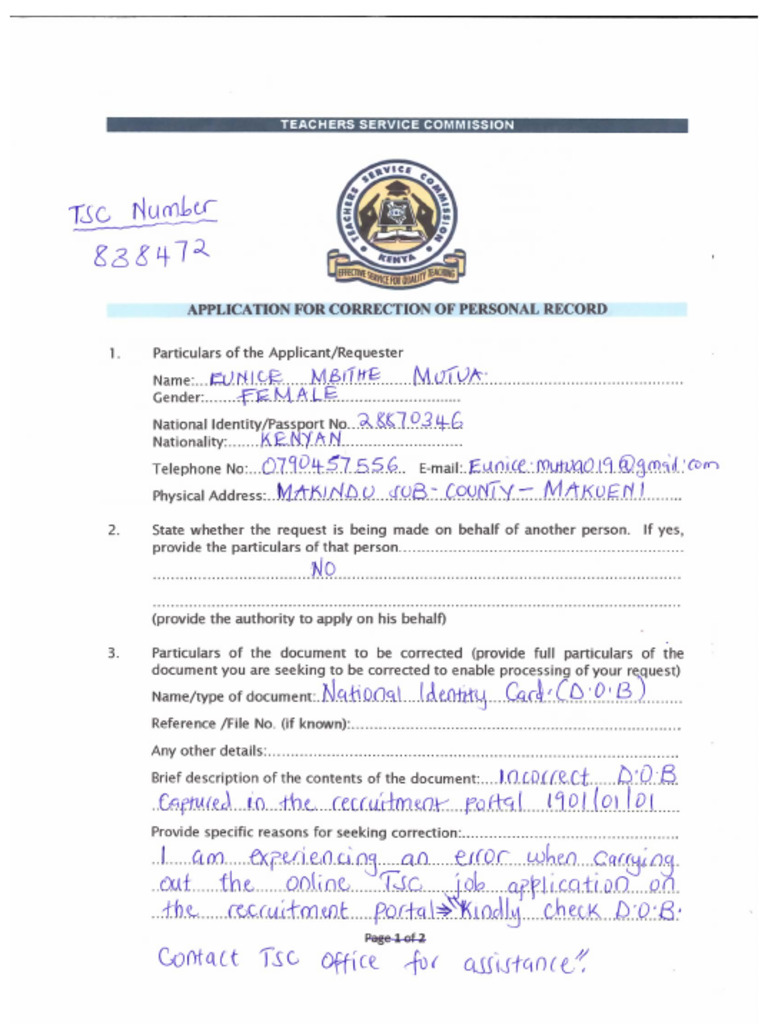 TEACHERS SERVICE COMMISSION
TSC Number
838472
TEACHERS SERVICE COMMISSION
KENYA
EFFECTIVE SERVICE FOR QUALITY TEACHING
APPLICATION FOR CORRECTION OF PERSONAL RECORD
1. Particulars of the Applicant/Requester
Name:...EUNICE MBITHE MUTUA.
Gender:......FEMALE
National Identity/Passport No...28870346
Nationality:......KENYAN
Telephone No:...0790457556.. E-mail:.Eunice.mutua019@gmail.com
Physical Address:..MAKINDU SUB-COUNTY-MAKUENI
2. State whether the request is being made on behalf of another person. If yes,
provide the particulars of that person
NO
(provide the authority to apply on his behalf)
3. Particulars of the document to be corrected (provide full particulars of the
document you are seeking to be corrected to enable processing of your request)
Name/type of document:.National Identity Card.(D.O.B)
Reference /File No. (if known):
Any other details:
Brief description of the contents of the document:...Incorrect D.O.B
Captured in the recruitment portal 1901/01/01
Provide specific reasons for seeking correction:
I am experiencing an error when carrying
out the online TSC job application on
the recruitment portal⇒ "Kindly check D.O.B.
Page 1 of 2
Contact TSC office for assistance".